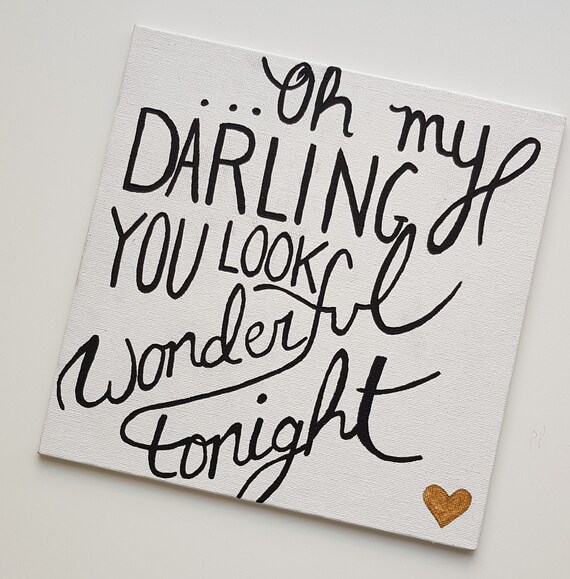 ...Oh my
DARLING
YOU LOOK
wonderful
tonight